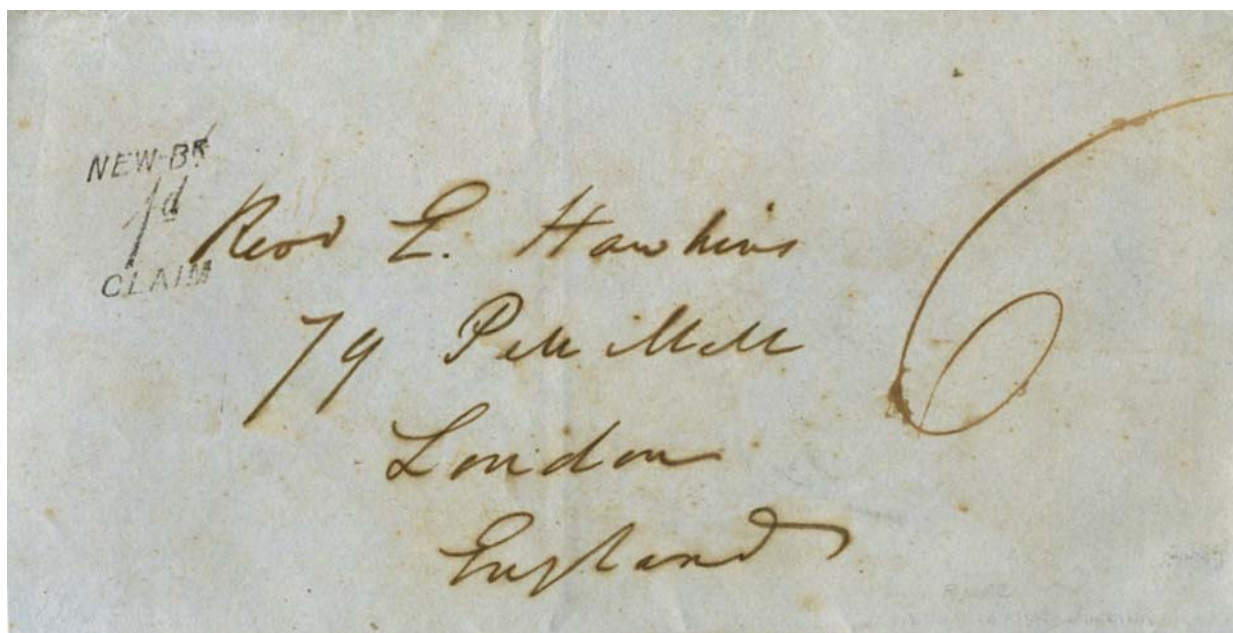 NEW-BK
1d
CLAIM
Revd E. Hawkins
79 Pall Mall
London
England
6